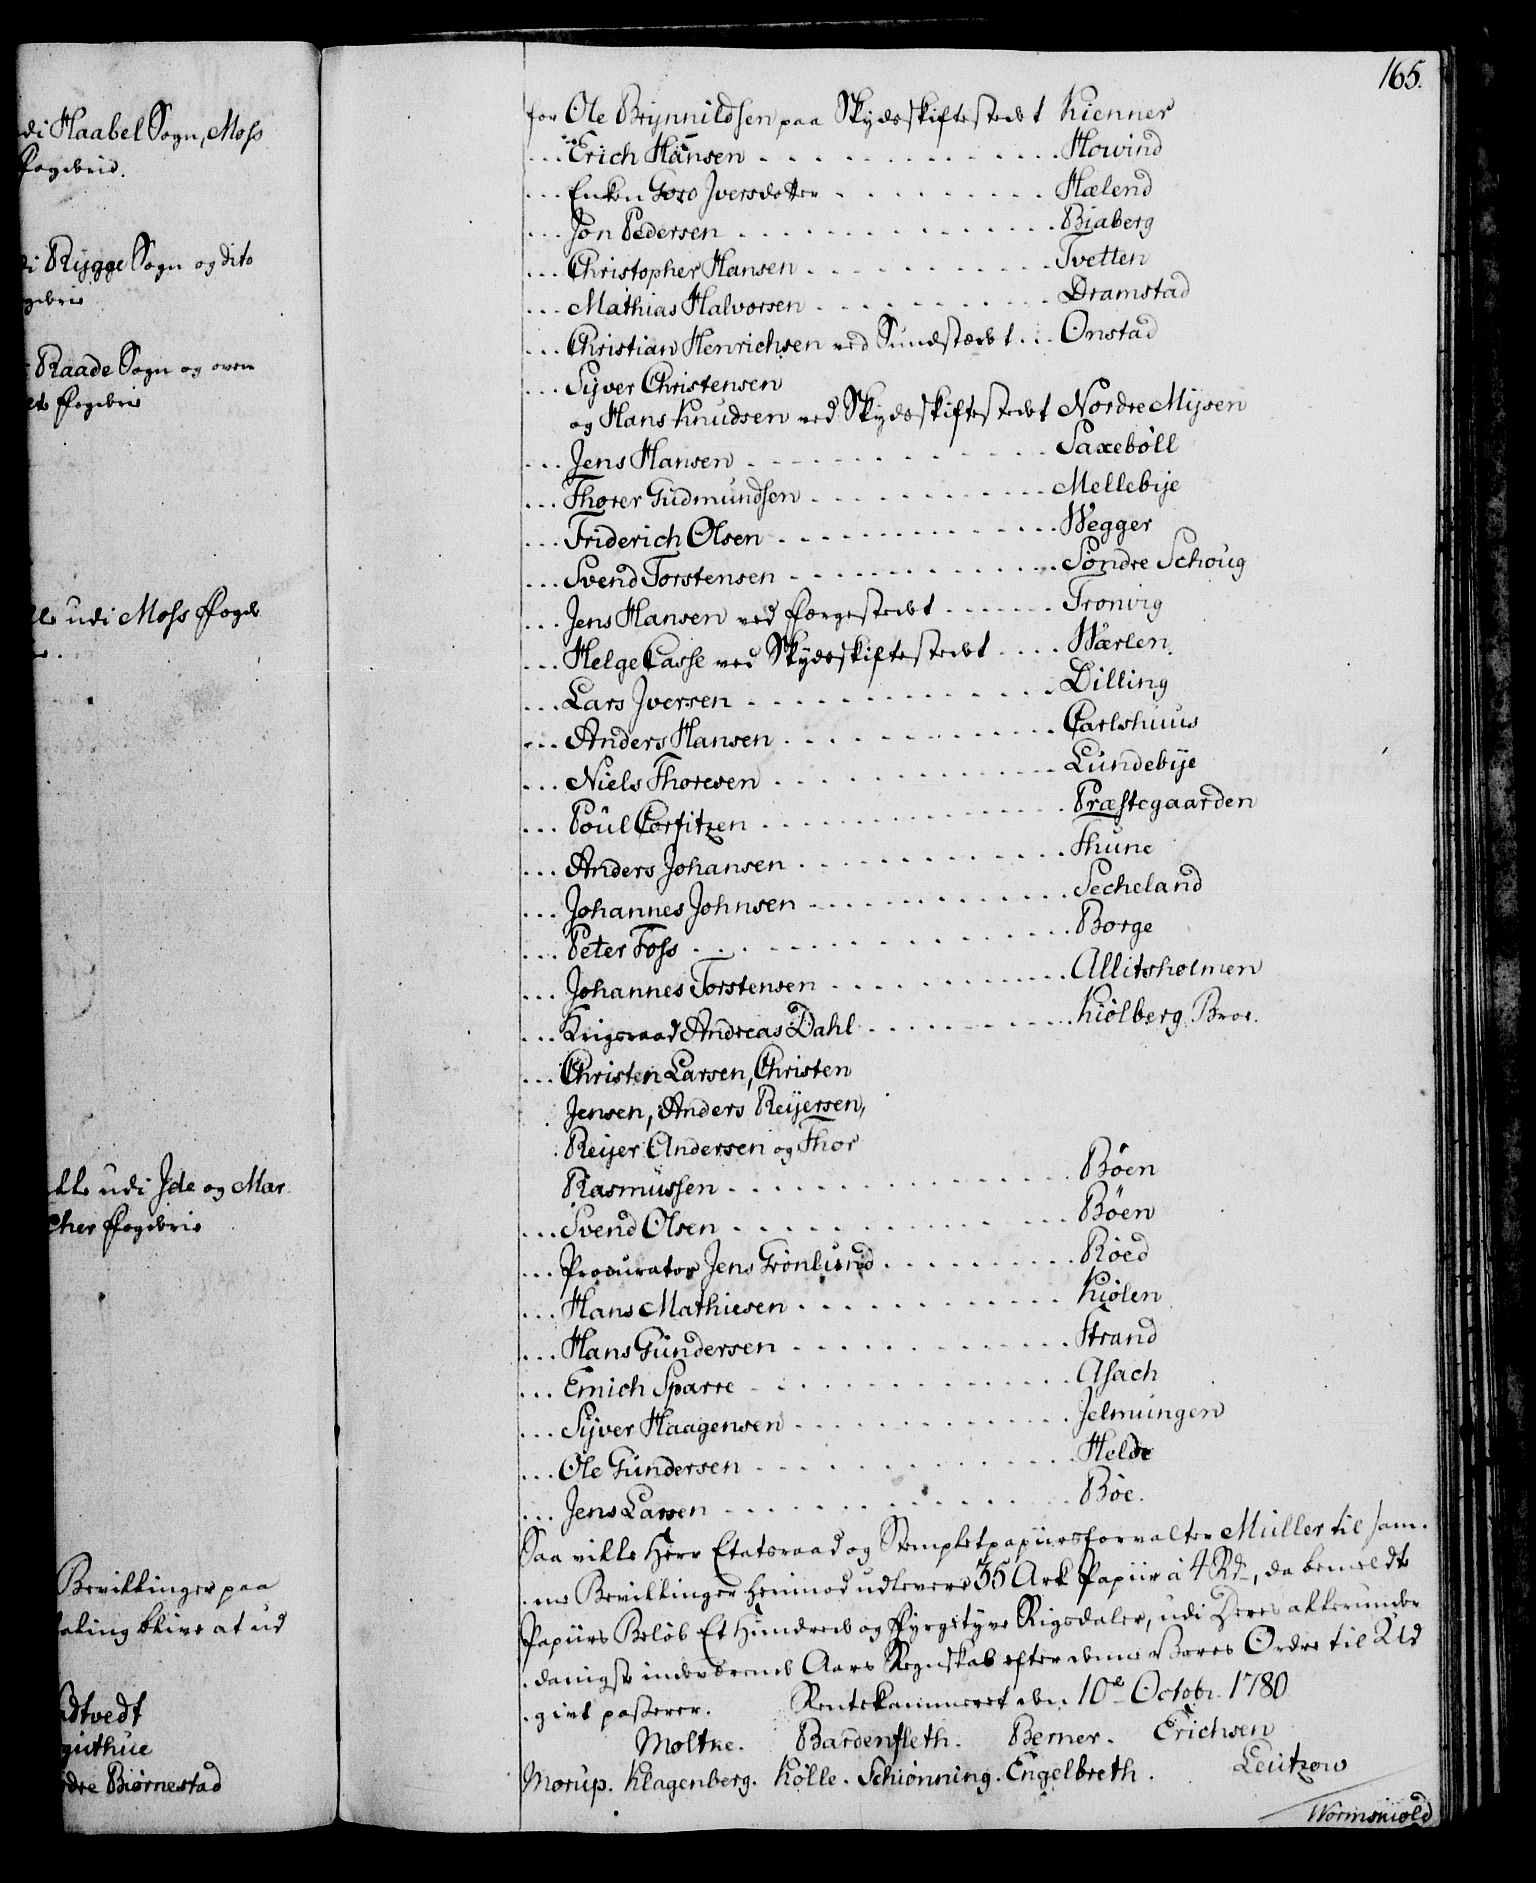 165.
di Haabel Sogn, Moss
Fogderie.
di Rygge Sogn og dito
gderie
Raade Sogn og oven
Fogderie
udi Moss Fogde
udi Ide og Mar
cher Fogderie
Bevillinger paa
taling blive at ud
dtvedt
guthue
rdre Biørnestad
for Ole Brynnildsen paa Skydsskiftestedet Kienner
... Erich Hansen . . . Howind
... Enken Goro Iversdotter . . . Hælend
... Jon Pedersen . . . Biaberg
... Christopher Hansen . . . Tvetten
... Mathias Halvorsen . . . Dramstad
... Christian Henrichsen ved Sundstædet . . . Onstad
... Syver Christensen
og Hans Knudsen ved Skydsskiftestedet Nordre Mysen
... Jens Hansen . . . Saxebøll
... Thorer Gudmundsen . . . Mellebye
... Friderich Olsen . . . Wegger
... Svend Torstensen . . . Søndre Schoug
... Jens Hansen ved Færgestedet . . . Tronvig
... Helge Casse ved Skydsskiftestedet . . . Wærlen
... Lars Iversen . . . Dilling
... Anders Hansen . . . Carlshuus
... Niels Thoresen . . . Lundebye
... Poul Corfitzen . . . Præstegaarden
... Anders Johansen . . . Thune
... Johannes Johnsen . . . Secheland
... Peter Foss . . . Borge
... Johannes Torstensen . . . Allitsholmen
... Krigsraad Andreas Dahl . . . Kiølberg Broe.
... Christen Larsen, Christen
Jensen, Anders Reijersen,
Reijer Andersen og Thor
Rasmussen . . . Böen
... Svend Olsen . . . Böen
... Procurator Jens Grönlund . . . Röed
... Hans Mathiesen . . . Kiølen
... Hans Gundersen . . . Strand
... Emich Sparre . . . Asach
... Syver Haagensen . . . Jelmungen
... Ole Gundersen . . . Helde
... Jens Larsen . . . Böe.
Saa ville Herr Etatsraad og Stempletpapiirsforvalter Müller til sam-
me Bevillinger herimod udlevere 35 Ark Papiir à 4 Rd, da bemeldte
Papiirs Beløb Et Hundrede og Fyrgetyve Rigsdaler, udi Deres allerunder
danigst indeværende Aars Regnskab efter denne Vores Ordre til Ud
givt passerer. Rentekammeret den 10de Octobr. 1780
Moltke. Bardenfleth. Berner. Erichsen
Morup. Klagenberg. Kölle. Schiønning. Engelbreth. Leutzow
Wormskiold